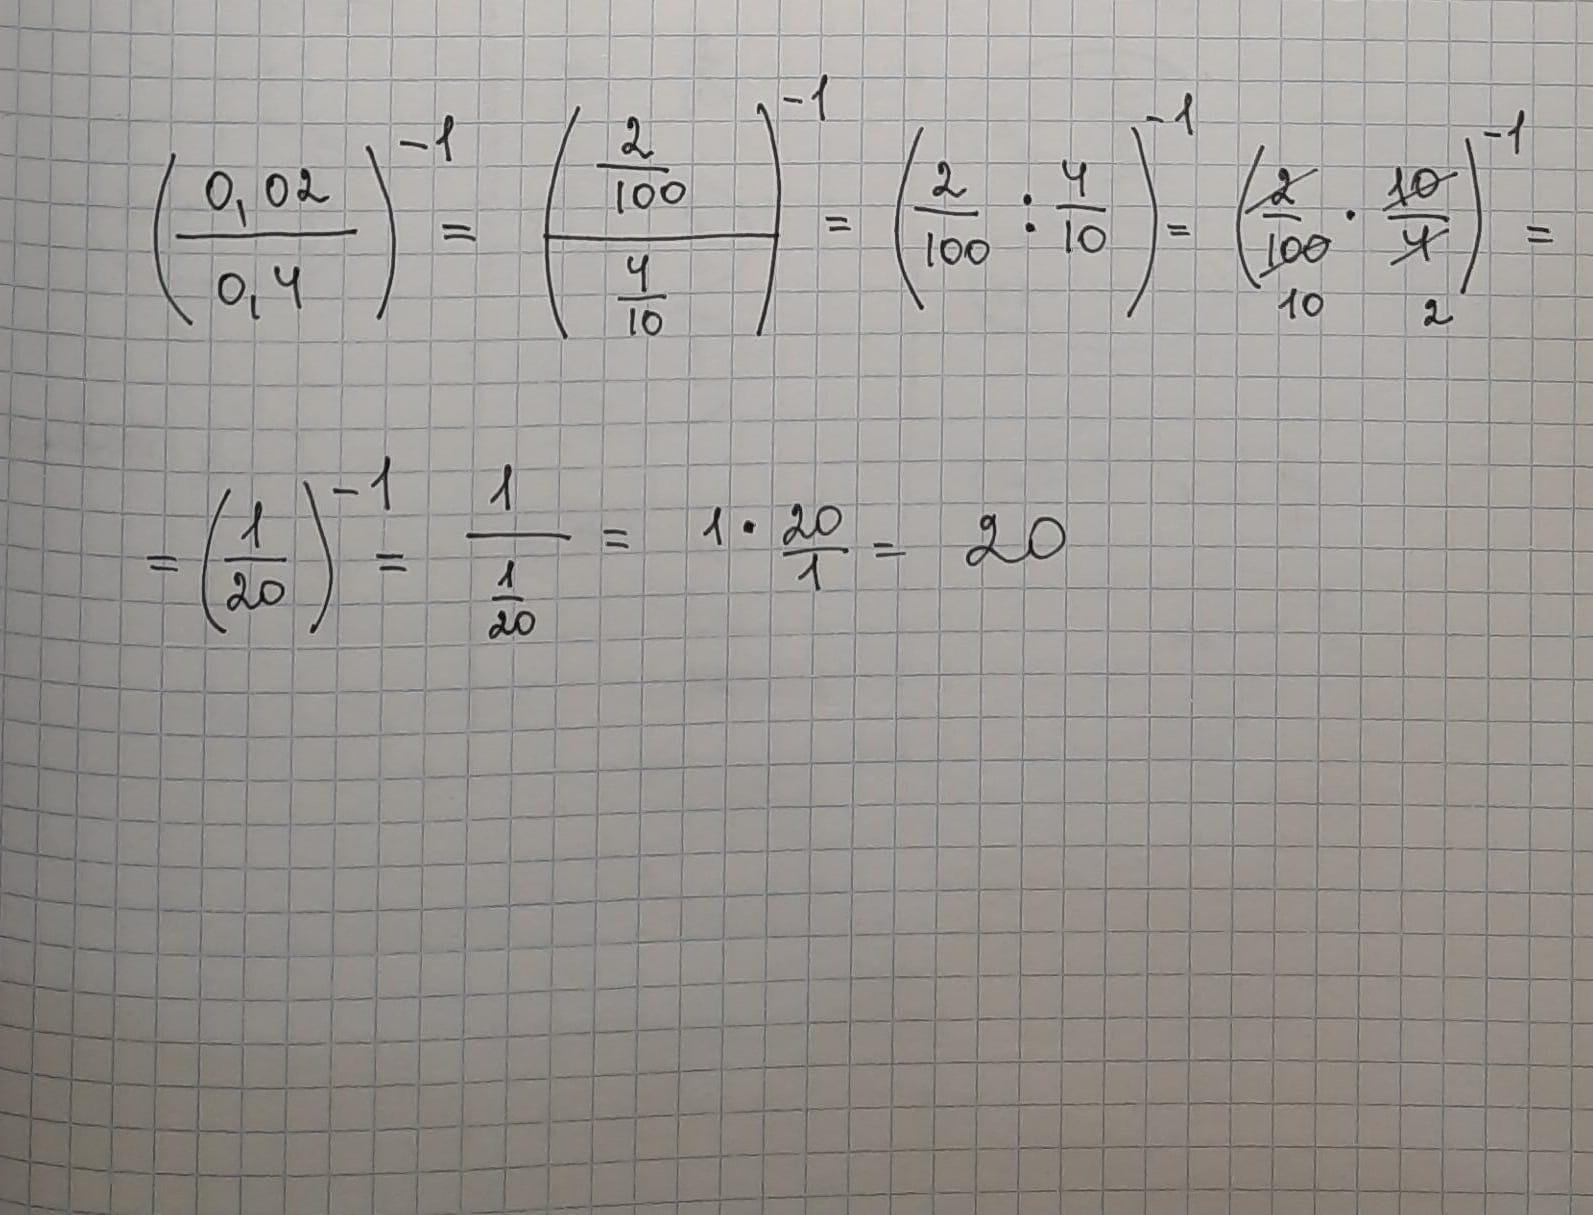 (0,02/0,4)^-1 = ((2/100)/(4/10))^-1 = (2/100 : 4/10)^-1 = (2/100 10 · 10/4 2)^-1 =
= (1/20)^-1 = 1/(1/20) = 1 · 20/1 = 20